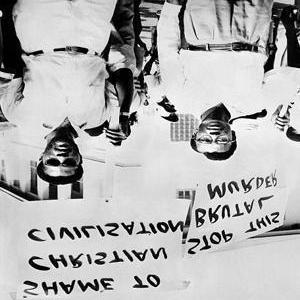 SHAME TO
CHRISTIAN
CIVILISATION
STOP THIS
BRUTAL
MURDER